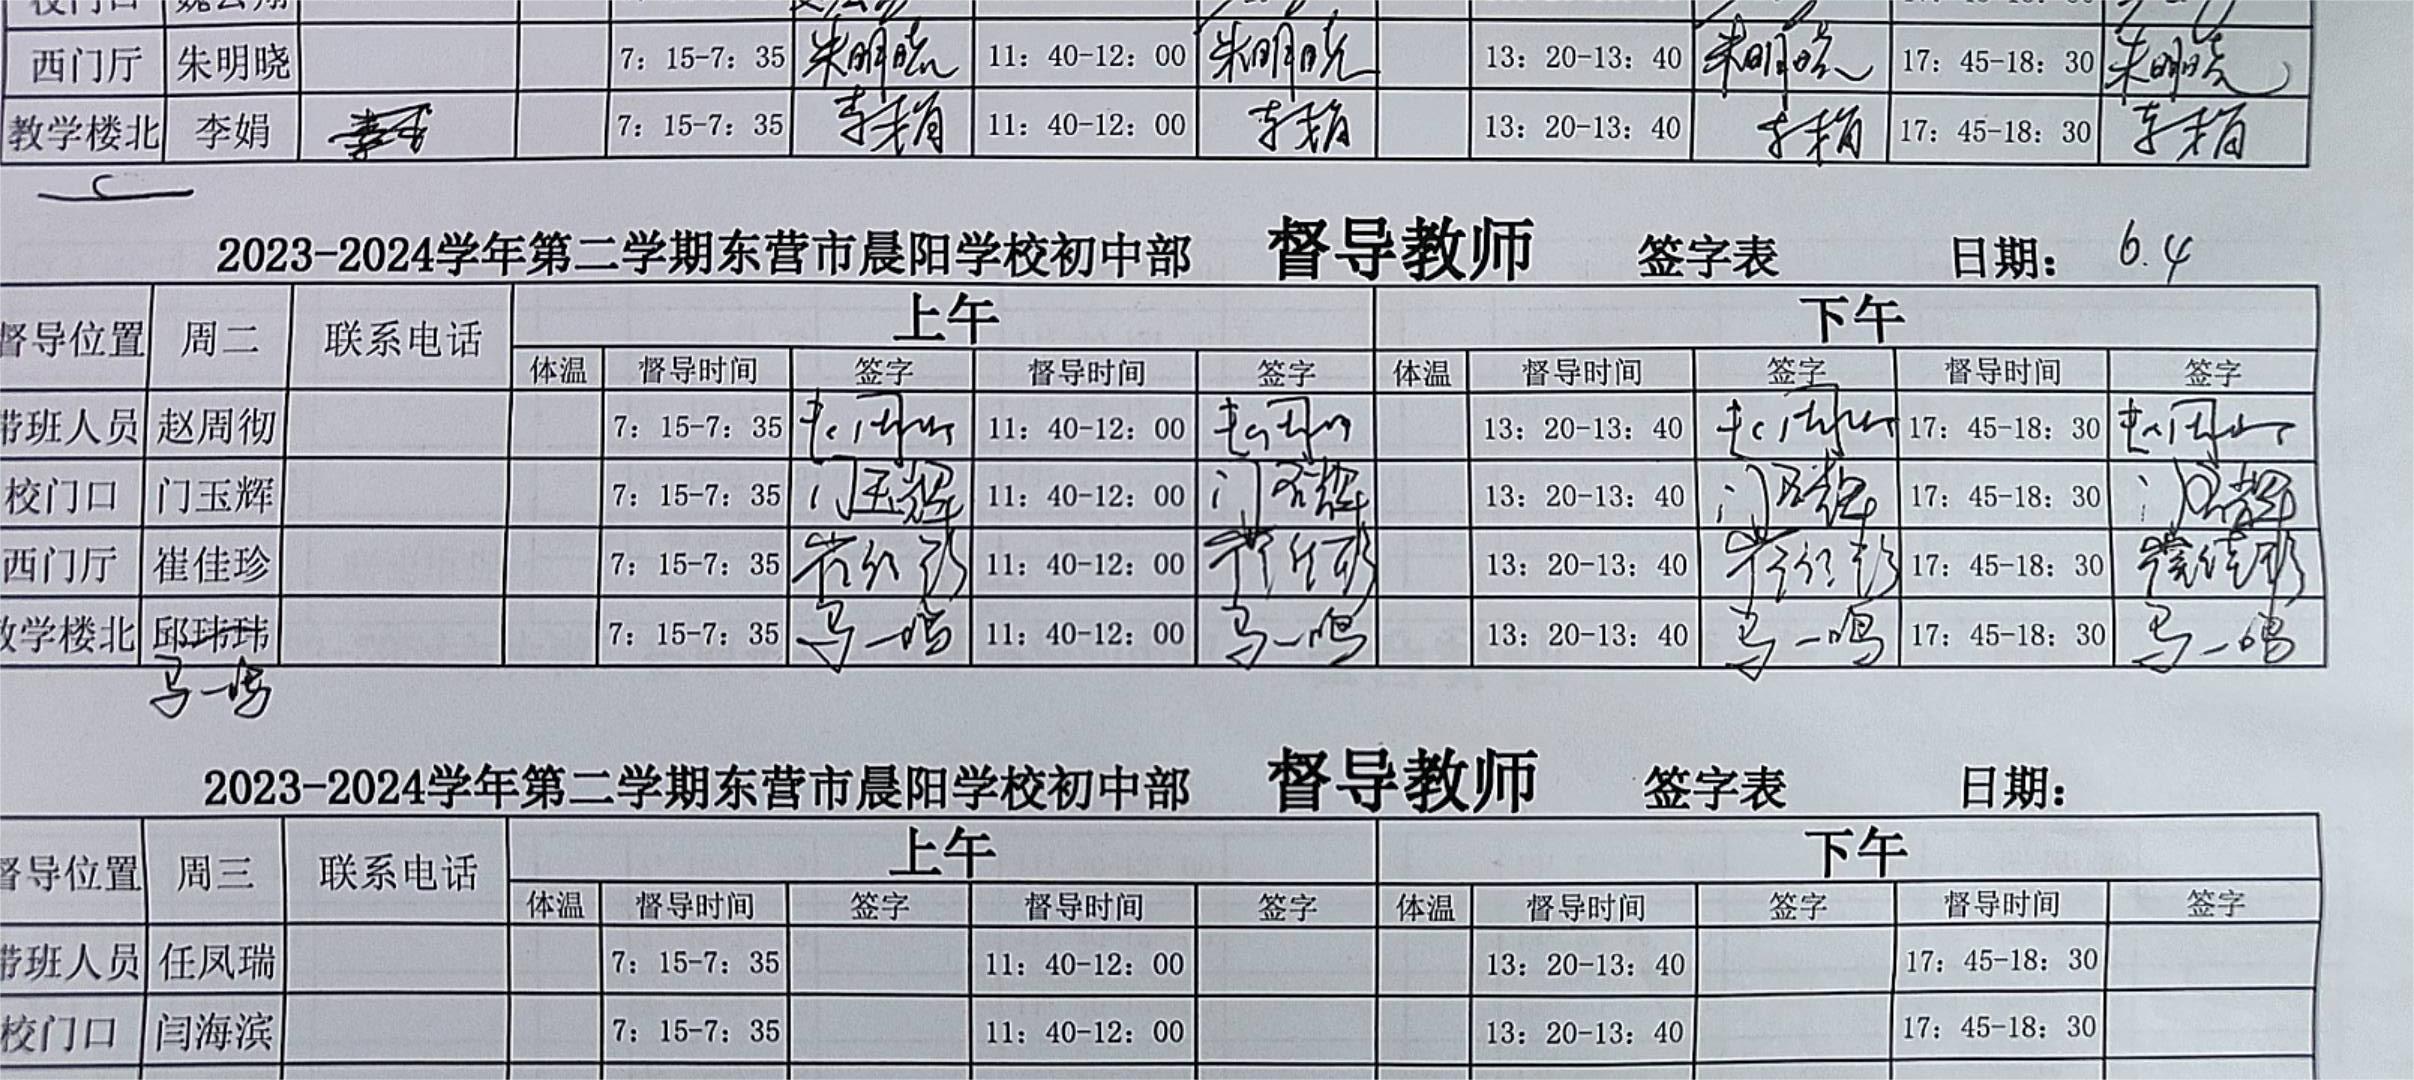 西门厅 朱明晓 7：15-7：35 朱明晓 11：40-12：00 朱明晓 13：20-13：40 朱明晓 17：45-18：30 朱明晓
教学楼北 李娟 7：15-7：35 李娟 11：40-12：00 李娟 13：20-13：40 李娟 17：45-18：30 李娟
2023-2024学年第二学期东营市晨阳学校初中部 督导教师 签字表 日期： 6.4
督导位置 周二 联系电话 上午 下午
体温 督导时间 签字 督导时间 签字 体温 督导时间 签字 督导时间 签字
带班人员 赵周彻 7：15-7：35 11：40-12：00 13：20-13：40 17：45-18：30
校门口 门玉辉 7：15-7：35 门玉辉 11：40-12：00 门玉辉 13：20-13：40 门玉辉 17：45-18：30 门玉辉
西门厅 崔佳珍 7：15-7：35 崔佳珍 11：40-12：00 崔佳珍 13：20-13：40 崔佳珍 17：45-18：30 崔佳珍
教学楼北 邱玮玮 7：15-7：35 马一鸣 11：40-12：00 马一鸣 13：20-13：40 马一鸣 17：45-18：30 马一鸣
马一鸣
2023-2024学年第二学期东营市晨阳学校初中部 督导教师 签字表 日期：
督导位置 周三 联系电话 上午 下午
体温 督导时间 签字 督导时间 签字 体温 督导时间 签字 督导时间 签字
带班人员 任凤瑞 7：15-7：35 11：40-12：00 13：20-13：40 17：45-18：30
校门口 闫海滨 7：15-7：35 11：40-12：00 13：20-13：40 17：45-18：30